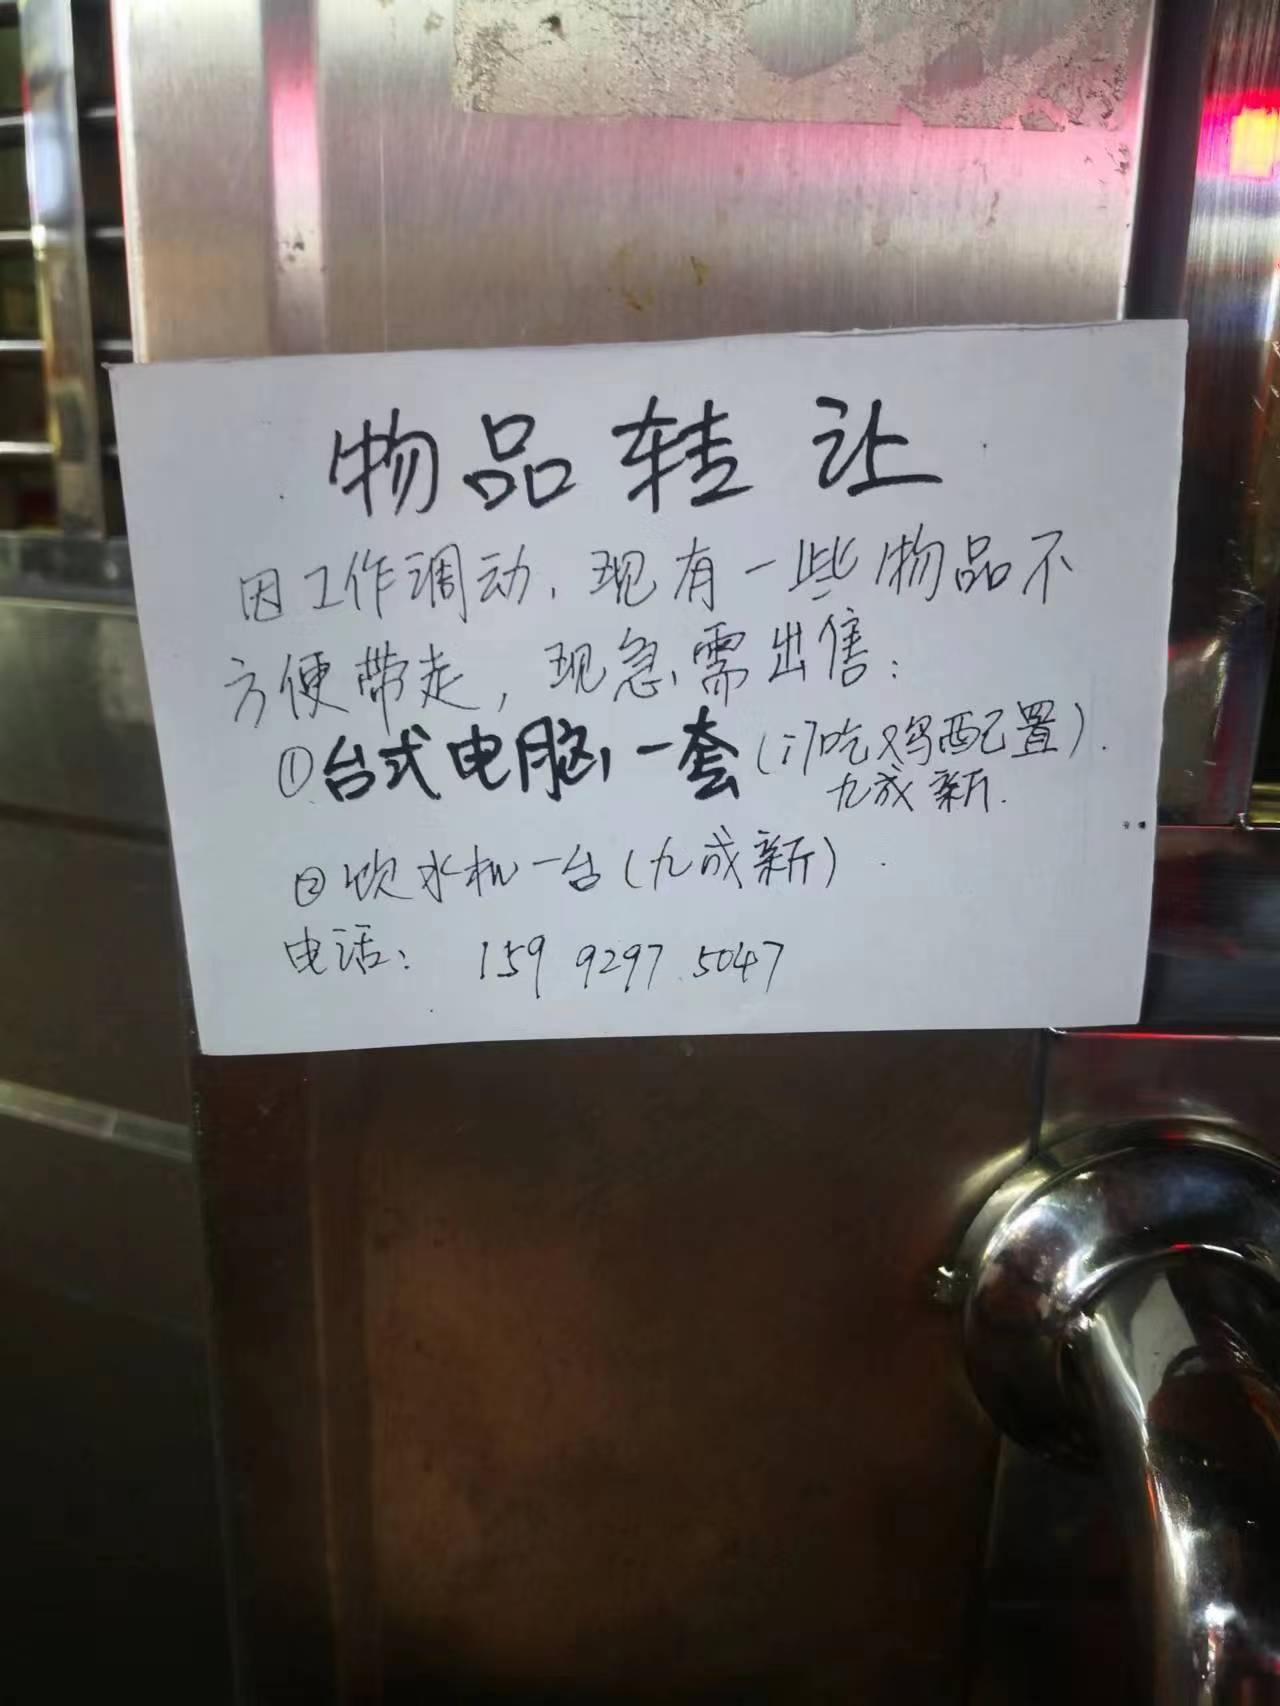 物品转让
因工作调动,现有一些物品不
方便带走,现急需出售:
①台式电脑一套(吃鸡配置).
九成新.
②饮水机一台(九成新).
电话: 159 9297 5047